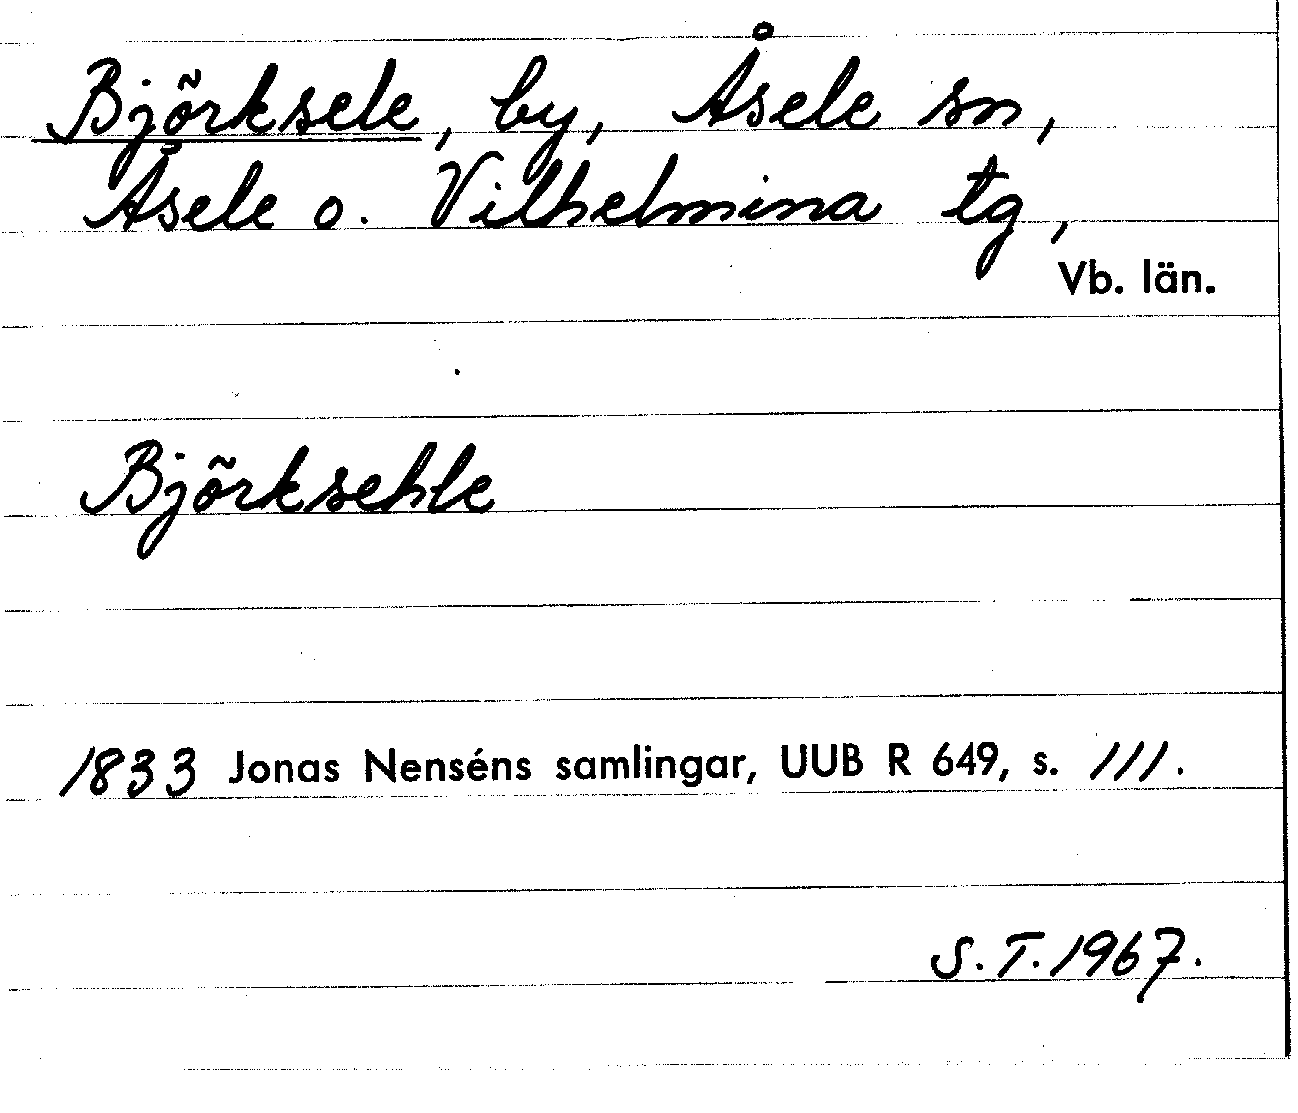 Björksele, by, Åsele sn,
Åsele o. Vilhelmina tg,
Vb. län.
Björksehle
1833 Jonas Nenséns samlingar, UUB R 649, s. 111.
S.T. 1967.